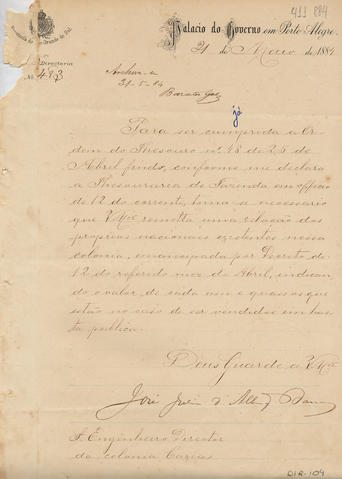 411 884
Palacio do Governo em Porto Alegre,
21 de Maio de 1884
Directoria
No 423
Archive-se
31-5-84
já
Para ser cumprida a Or-
dem do Thesouro no. 48 de 25 de
Abril findo, conforme me declara
a Thesouraria de Fazenda em officio
de 12 do corrente, torna-se necessario
que VMce remetta uma relação dos
proprios nacionaes existentes nessa
colonia, emancipada por Decreto de
12 do referido mez de Abril, indican-
do o valor de cada um e quaes os que
estão no caso de ser vendidos em has-
ta publica.
Deus Guarde a VMce
José Julio d'Alb. Barros
Sr. Engenheiro Director
da colonia Caxias
DIR-104